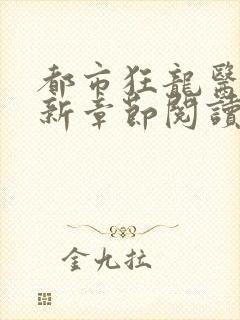 都市狂龍醫
新章節閱讀
金九拉